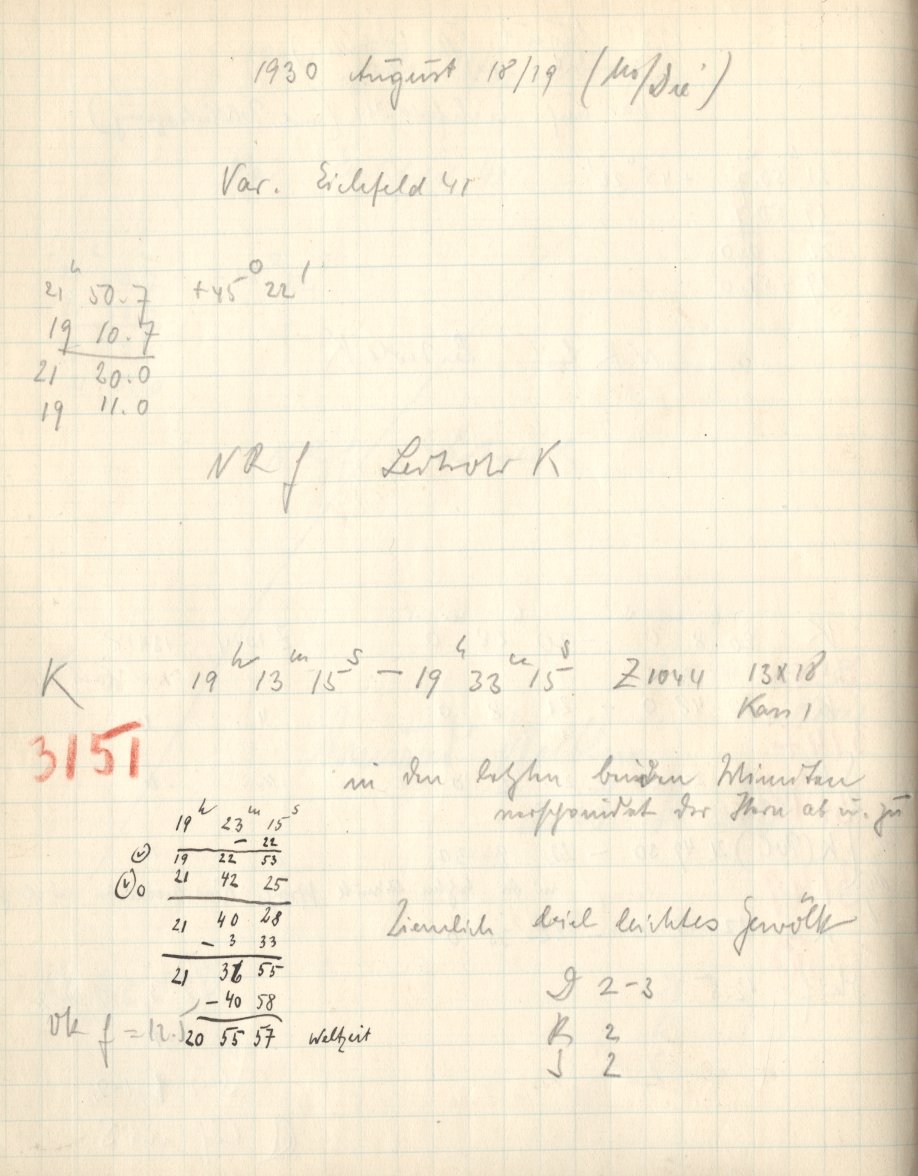 1930 August 18/19 (Mo/Die)
Var. Eichfeld 41
21ʰ 50.7 +45° 22'
19 10.7
21 20.0
19 11.0
NR f Leitrohr K
K 19ʰ 13ᵐ 15ˢ — 19ʰ 33ᵐ 15ˢ Z 1044 13x18
Kass 1
3151
in den letzten beiden Minuten
verschwindet der Stern ab u. zu
19ʰ 23ᵐ 15ˢ
— 22
19 22 53
21 42 25
21 40 28
— 3 33
21 36 55
Ziemlich viel leichtes Gewölk
D 2-3
R 2
S 2
— 40 58
OK f = 12.5
20 55 57 Weltzeit